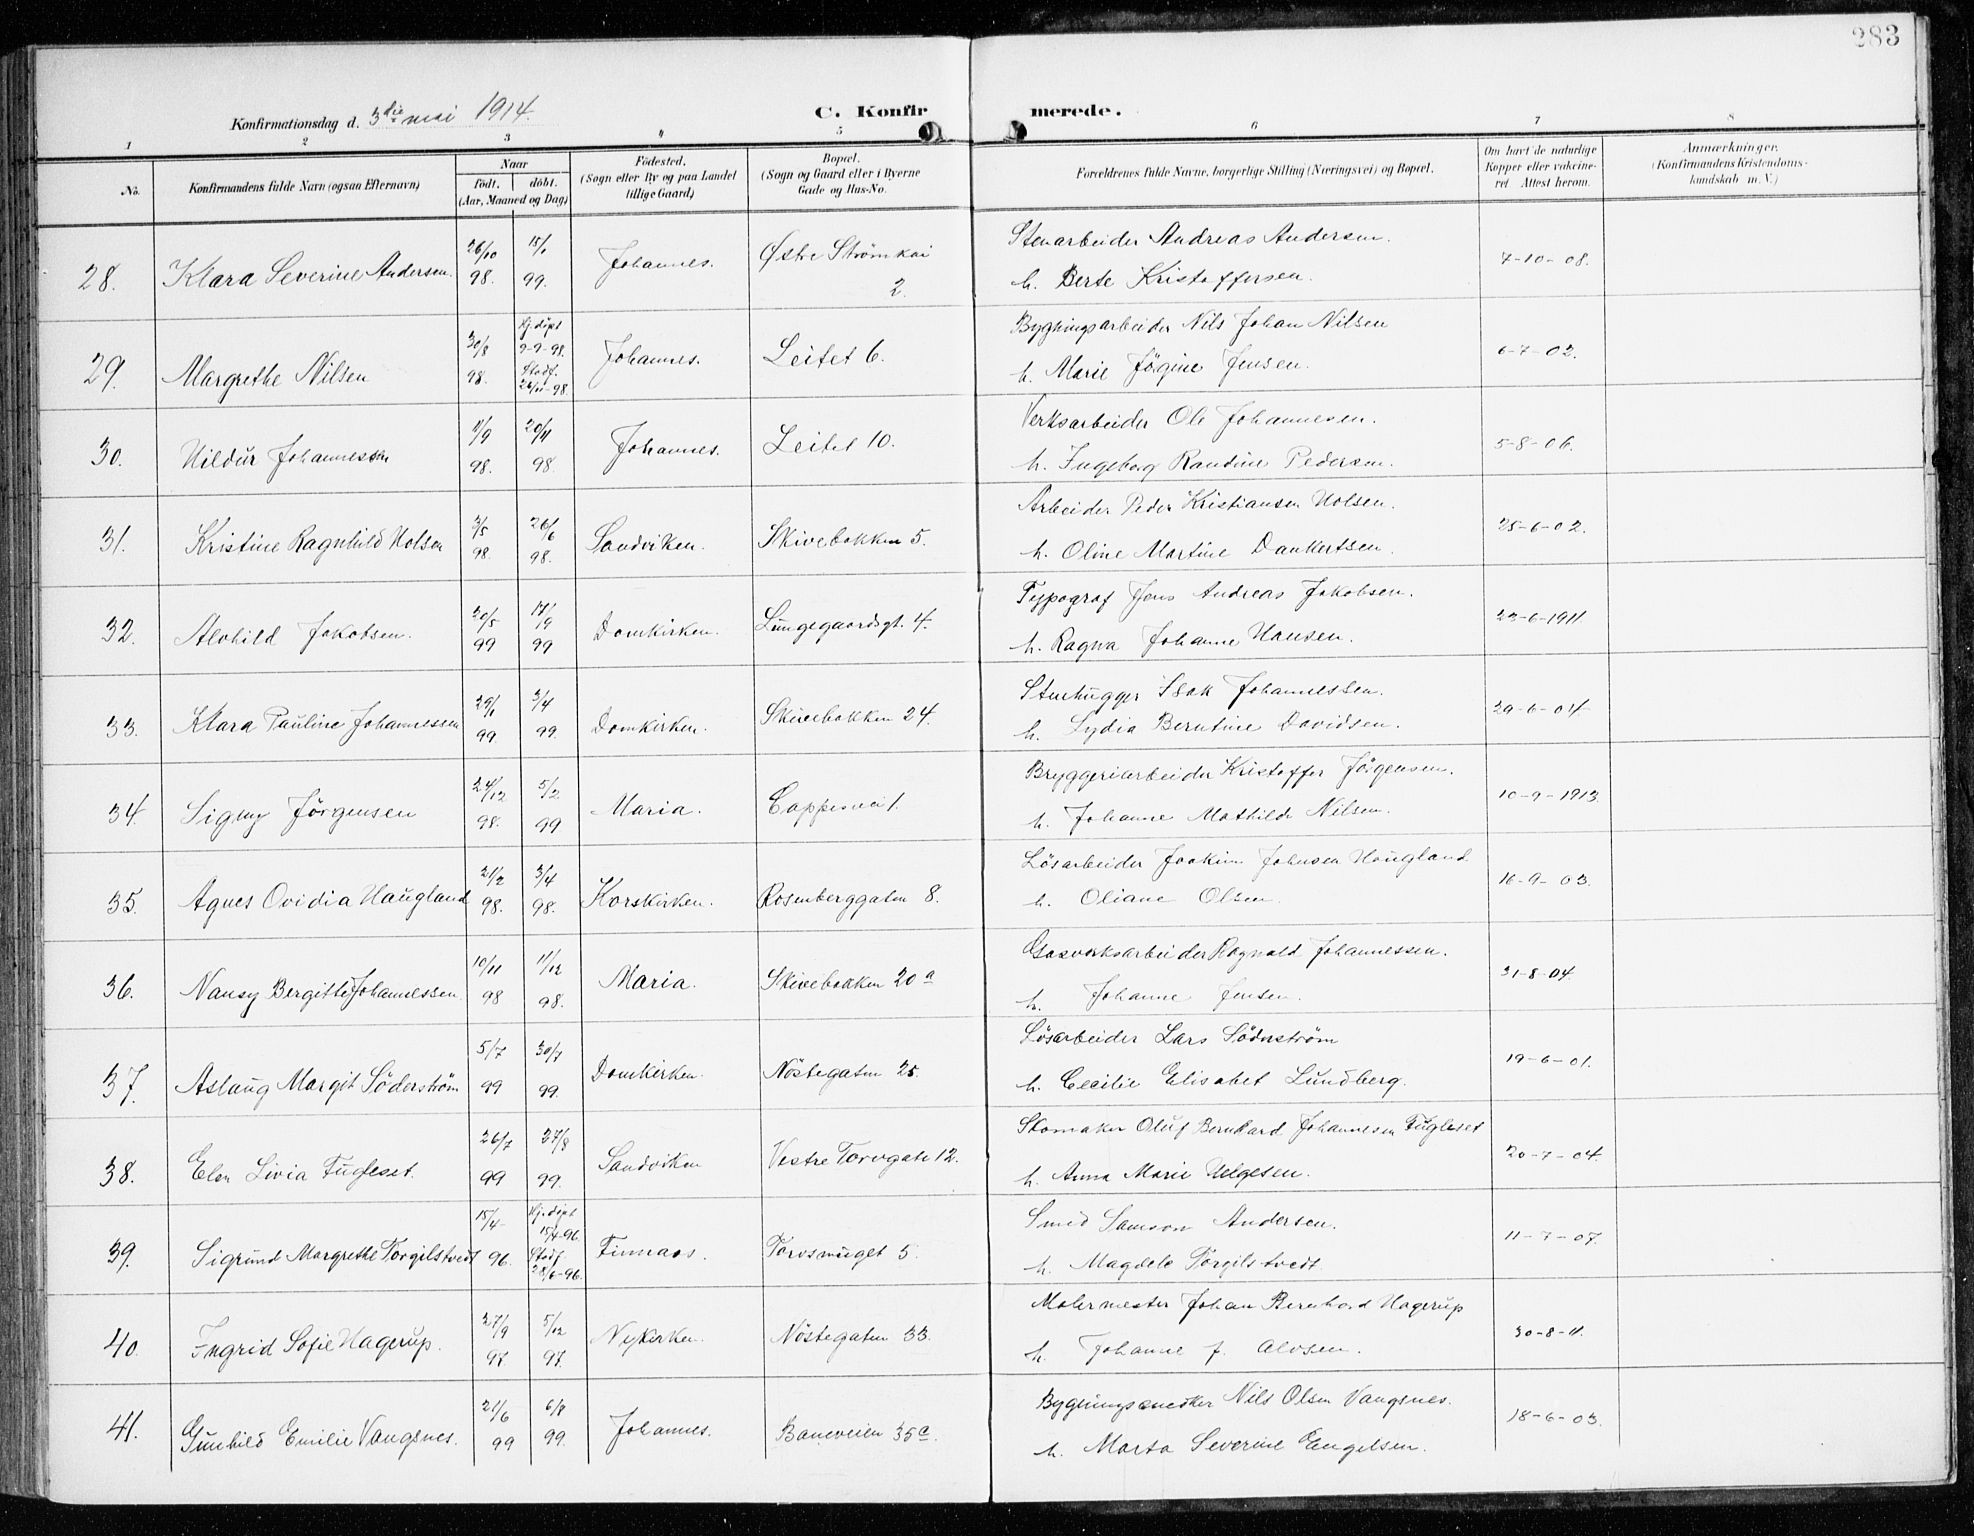 283
Konfirmationsdag d. 3die mai 1914.
C. Konfirmerede.
1 2 3 4 5 6 7 8
No.
Konfirmandens fulde Navn (ogsaa Efternavn)
Naar
født. døbt.
(Aar, Maaned og Dag)
Fødested.
(Sogn eller By og paa Landet
tillige Gaard)
Bopæl.
(Sogn og Gaard eller i Byerne
Gade og Hus-No.
Forældrenes fulde Navne, borgerlige Stilling (Næringsvei) og Bopæl.
Om havt de naturlige
Kopper eller vakcine-
ret Attest herom.
Anmærkninger.
(Konfirmandens Kristendoms-
kundskab m. V.)
28. Klara Severine Andersen. 26/10 98. 15/1 99. Johannes. Østre Strömkai 2. Stenarbeider Andreas Andersen.
h. Berte Kristoffersen. 7-10-08.
29. Margrethe Nilsen 30/8 98. Hj. döpt 9-9-98. Stadf. 26/11-98. Johannes. Leitet 6. Bygningsarbeider Nils Johan Nilsen
h. Marie Jörgine Jensen. 6-7-02.
30. Hildur Johannessen 11/9 98. 20/11 98. Johannes. Leitet 10. Verksarbeider Ole Johannesen.
h. Ingeborg Randine Pedersen. 5-8-06.
31. Kristine Ragnhild Holsen 3/5 98. 26/6 98. Sandviken. Skivebakken 5. Arbeider Peder Kristiansen Holsen.
h. Oline Martine Dankertsen. 25-6-02.
32. Alvhild Jakobsen. 20/5 99 17/9 99 Domkirken. Lungegaardsgt. 4. Typograf Jens Andreas Jakobsen.
h. Ragna Johanne Hansen. 23-6-1911
33. Klara Pauline Johannessen 29/1 99. 3/4 99. Domkirken. Skivebakken 24. Stenhugger Isak Johannessen.
h. Lydia Berntine Davidsen. 29-6-04.
34. Signy Jörgensen 24/12 98. 5/2 99. Maria. Cappesvei 1. Bryggeriarbeider Kristoffer Jörgensen.
h. Johanne Mathilde Nilsen. 10-9-1913.
35. Agnes Ovidia Haugland 21/2 98. 3/4 98. Korskirken. Rosenberggaten 8. Lösarbeider Joakim Johnsen Haugland
h. Oliane Olsen. 16-9-03.
36. Nansy Bergitte Johannessen. 10/11 98 11/12 98. Maria. Skivebakken 20 a Gasverksarbeider Ragnald Johannessen.
h. Johanne Jensen. 31-8-04.
37. Aslaug Margit Söderström 5/7 99 30/7 99. Domkirken. Nöstegaten 25. Lösarbeider Lars Söderström
h. Cecilie Elisabet Lundberg. 19-6-01.
38. Elen Livia Fugleset. 26/7 99 27/8 99. Sandviken Vestre Torvgate 12. Skomaker Oluf Bernhard Johannesen Fugleset
h. Anna Marie Helgesen. 20-7-04.
39. Sigrund Margrethe Torgilstvedt 15/4 96. Hj. döpt 15/4-96. Stadf. 28/6-96. Finnaas. Torvsmuget 5. Smed Samson Andersen.
h. Magdele Torgilstvedt. 11-7-07.
40. Ingrid Sofie Hagerup. 27/9 97. 5/12 97. Nykirken. Nöstegaten 33. Malermester Johan Bernhard Hagerup
h. Johanne f. Alvsen. 30-8-11.
41. Gunhild Emilie Vangsnes. 21/6 99 6/8 99. Johannes. Baneveien 35 a. Bygningssnedker Nils Olsen Vangsnes.
h. Marta Severine Engelsen. 18-6-03.